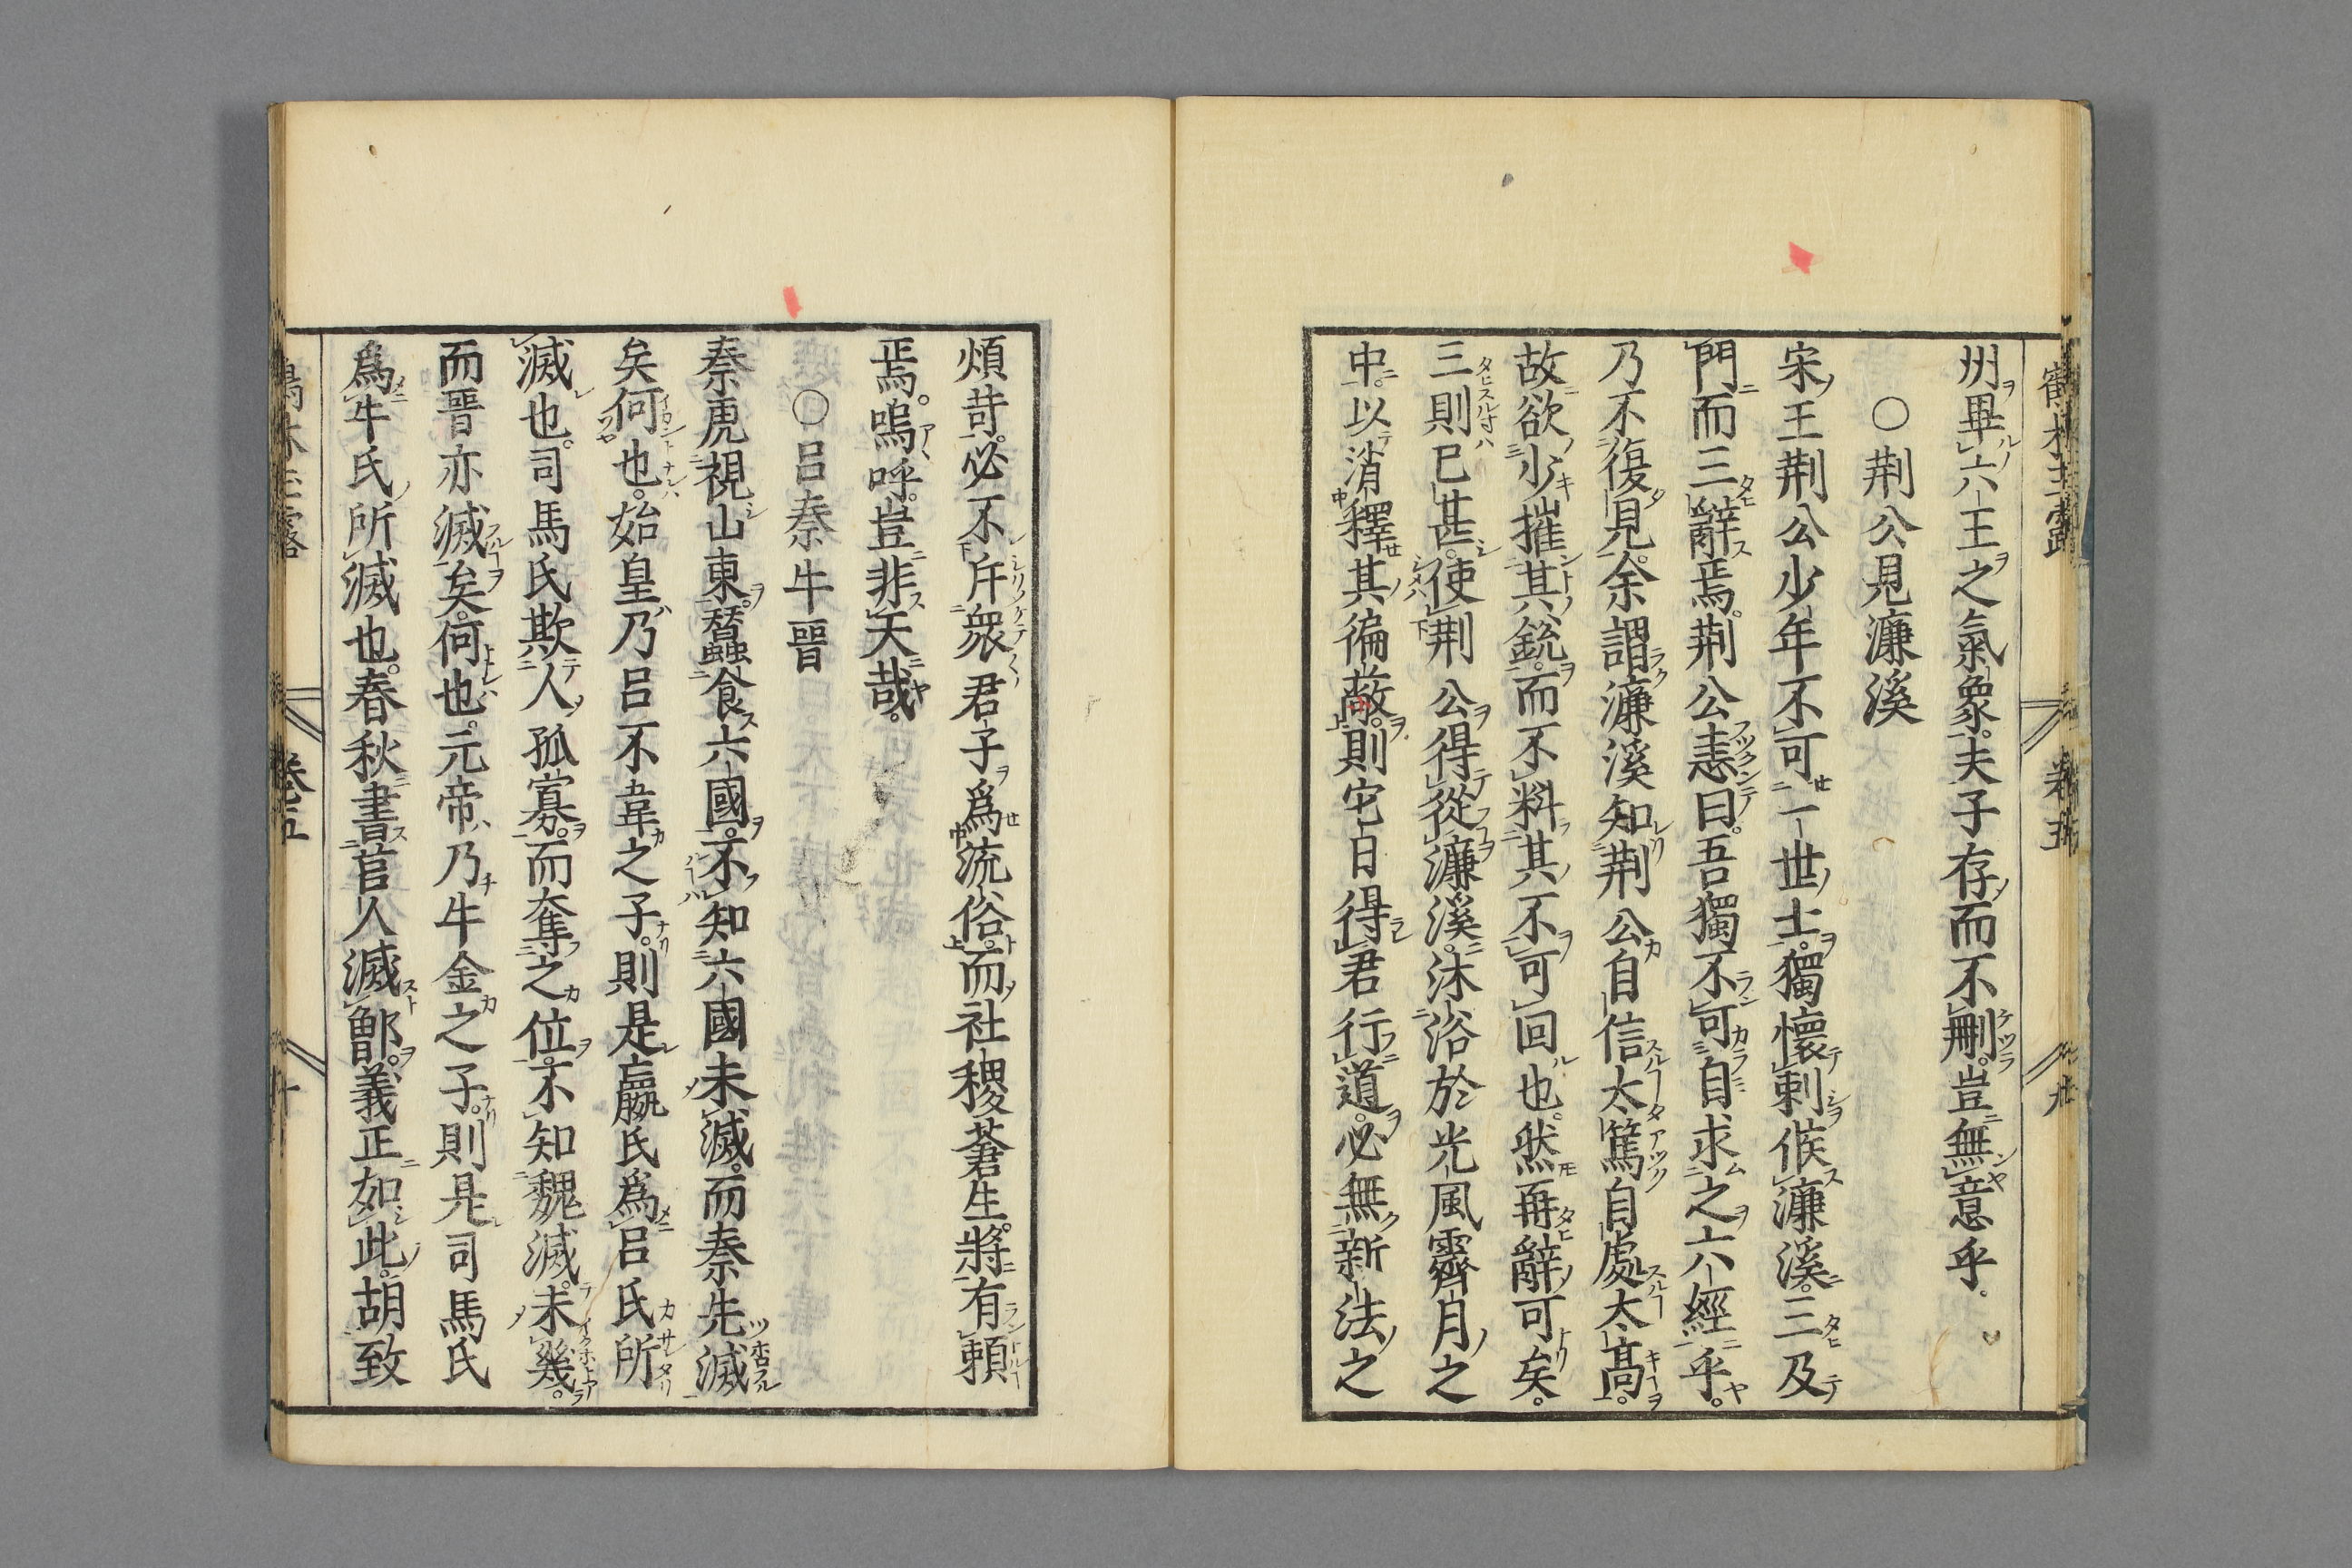 州畢六王之氣象夫子存而不刪豈無意乎
〇荆公見濂溪
宋王荆公少年不可一世士獨懷刺候濂溪三及
門而三辭焉荆公恚曰吾獨不可自求之六經乎
乃不復見余謂濂溪知荆公自信太篤自處太髙
故欲少摧其銳而不料其不可回也然再辭可矣
三則已甚使荆公得從濂溪沐浴於光風霽月之
中以消釋其偏蔽則它日得君行道必無新法之
煩苛必不斥衆君子爲流俗而社稷蒼生將有頼
焉嗚呼豈非天哉
〇吕秦牛晉
秦虎視山東蠶食六國不知六國未滅而秦先滅
矣何也始皇乃吕不韋之子則是嬴氏爲吕氏所
滅也司馬氏欺人孤寡而奪之位不知魏滅未幾
而晉亦滅矣何也元帝乃牛金之子則是司馬氏
爲牛氏所滅也春秋書莒人滅鄫義正如此胡致
卷五